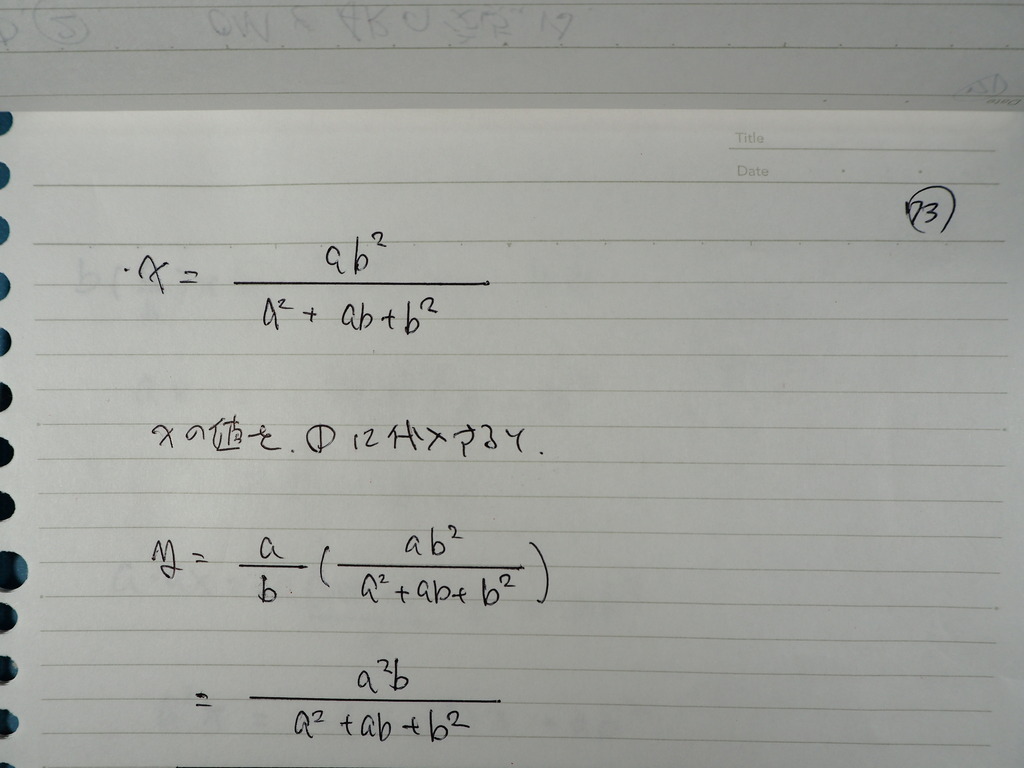 Title
Date
73
・x = ab² / (a² + ab + b²)
xの値を、①に代入すると、
y = a/b ( ab² / (a² + ab + b²) )
= a²b / (a² + ab + b²)